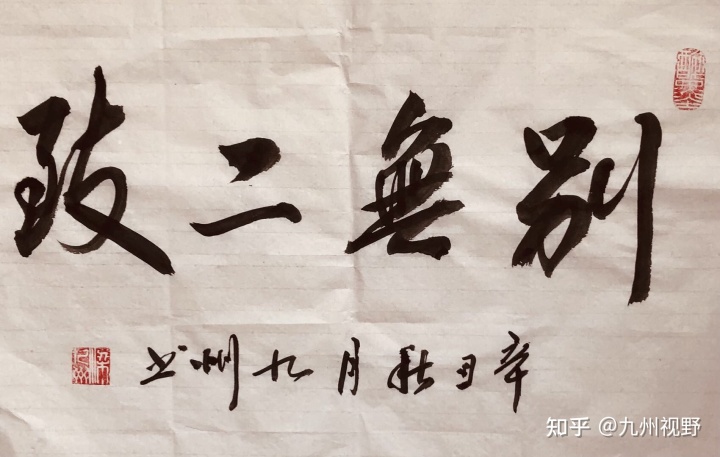 别無二致
辛丑秋月九州书
知乎 @九州视野